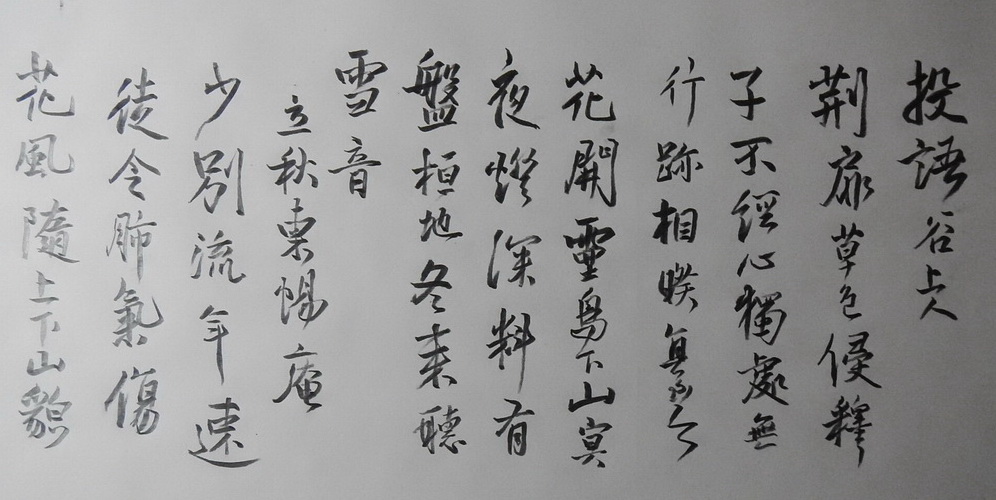 投語谷上人
荊扉草色侵釋
子不經心獨處無
行跡相暌真
花開靈鳥下山冥
夜燈深料有
盤桓地冬來聽
雪音
立秋東惕庵
少別流年速
徒令肺氣傷
花風隨上下山貌